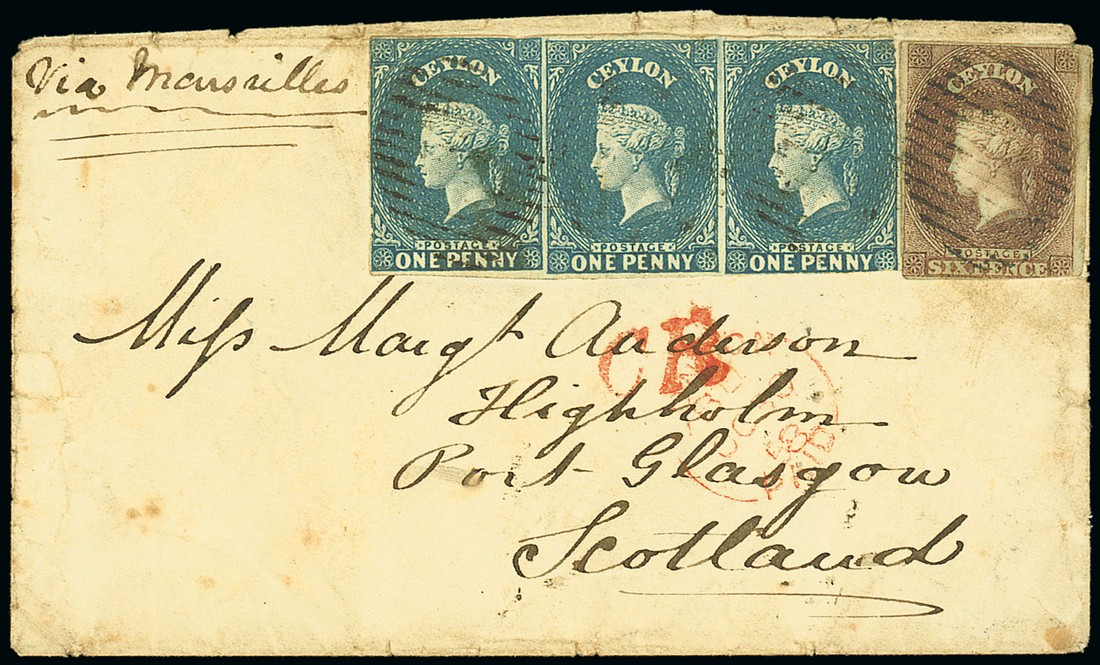 Via Marseilles
CEYLON CEYLON CEYLON CEYLON
POSTAGE POSTAGE POSTAGE POSTAGE
ONE PENNY ONE PENNY ONE PENNY SIX PENCE
CB
PAID
Miss Margt Anderson
Highholm
Port Glasgow
Scotland